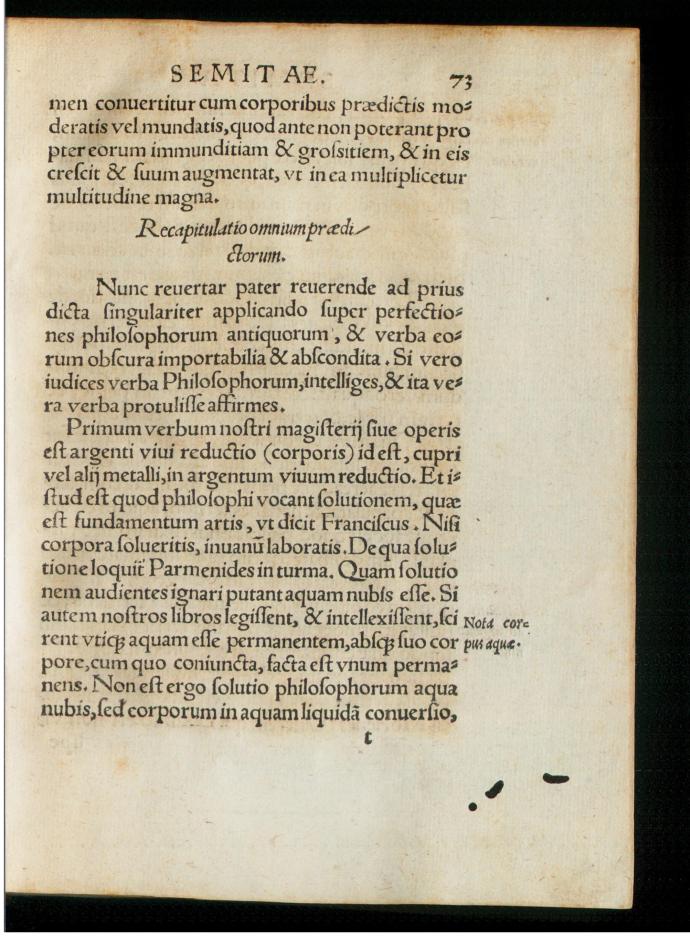 SEMITAE. 73
men conuertitur cum corporibus prædictis mo⸗
deratis vel mundatis, quod ante non poterant pro
pter eorum immunditiam & grossitiem, & in eis
crescit & suum augmentat, vt in ea multiplicetur
multitudine magna.
Recapitulatio omnium prædi⸗
ctorum.
Nunc reuertar pater reuerende ad prius
dicta singulariter applicando super perfectio⸗
nes philosophorum antiquorum, & verba eo⸗
rum obscura importabilia & abscondita. Si vero
iudices verba Philosophorum, intelliges, & ita ve⸗
ra verba protulisse affirmes.
Primum verbum nostri magisterij siue operis
est argenti viui reductio (corporis) id est, cupri
vel alij metalli, in argentum viuum reductio. Et i⸗
stud est quod philosophi vocant solutionem, quæ
est fundamentum artis, vt dicit Franciscus. Nisi
corpora solueritis, inuanũ laboratis. De qua solu⸗
tione loquit̃ Parmenides in turma. Quam solutio
nem audientes ignari putant aquam nubis esse. Si
autem nostros libros legissent, & intellexissent, sci
rent vtiqꝫ aquam esse permanentem, absqꝫ suo cor
pore, cum quo coniuncta, facta est vnum perma⸗
nens. Non est ergo solutio philosophorum aqua
nubis, sed corporum in aquam liquidã conuersio,
t
Nota cor⸗
pus aquæ.